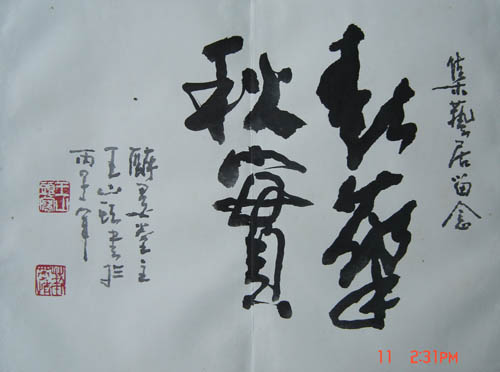 集藝居留念
春華
秋實
醉墨堂主
王山頭書於
丙子年
11 2:31PM